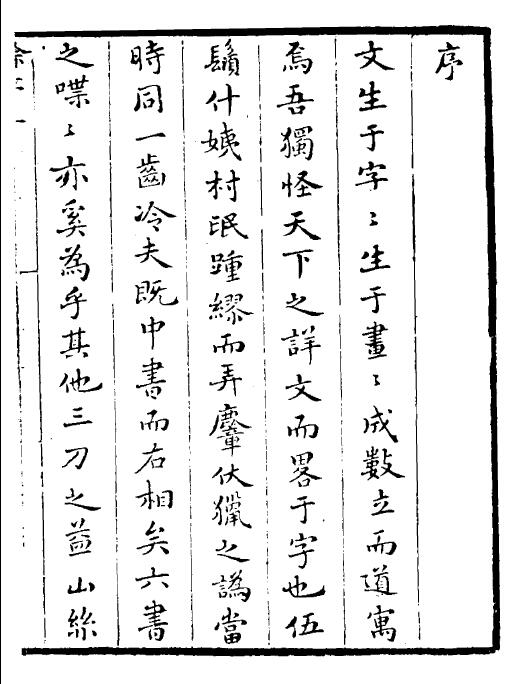 序
文生于字〻生于畫〻成數立而道寓
焉吾獨怪天下之詳文而畧于字也伍
鬚什姨村氓踵繆而弄麞伏獵之譌當
時同一齒冷夫既中書而右相矣六書
之喋〻亦奚為乎其他三刀之益山絲